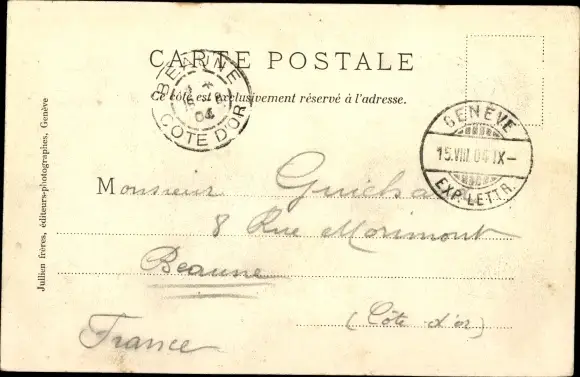 CARTE POSTALE
Ce côté est exclusivement réservé à l'adresse.
BEAUNE
04
CÔTE D'OR
GENÈVE
15.VIII.04.IX-
EXP. LETTR.
Monsieur
8 Rue Morimont
Beaune
(Côte d'or)
France
Jullien frères, éditeurs-photographes, Genève